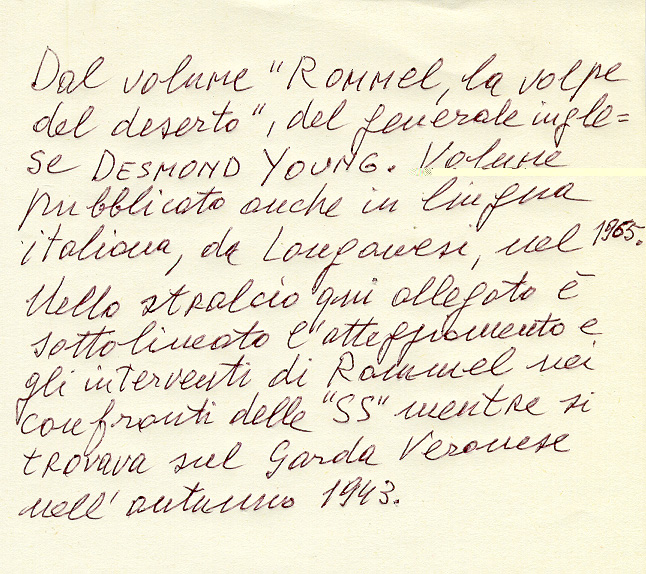 Dal volume "Rommel, la volpe
del deserto", del generale ingle=
se DESMOND YOUNG. Volume
pubblicato anche in lingua
italiana, da Longanesi, nel 1965.
Nello stralcio qui allegato è
sottolineato l'atteggiamento e
gli interventi di Rommel nei
confronti delle "SS" mentre si
trovava sul Garda Veronese
nell'autunno 1943.